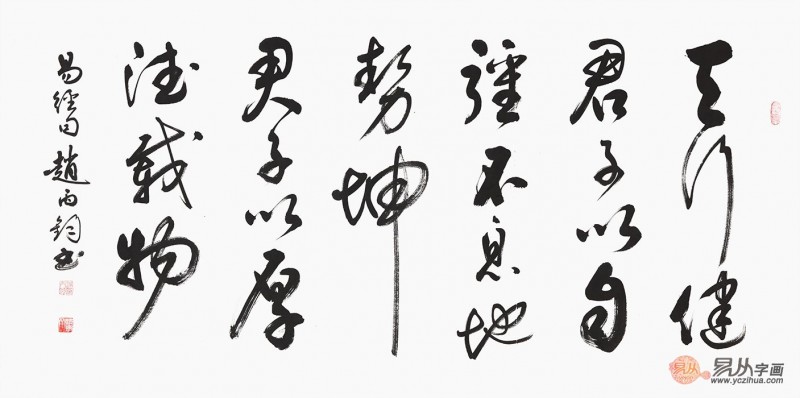 天行健
君子以自
强不息地
势坤
君子以厚
德载物
易经句 赵雨钧书
易从 易从字画
www.yczihua.com